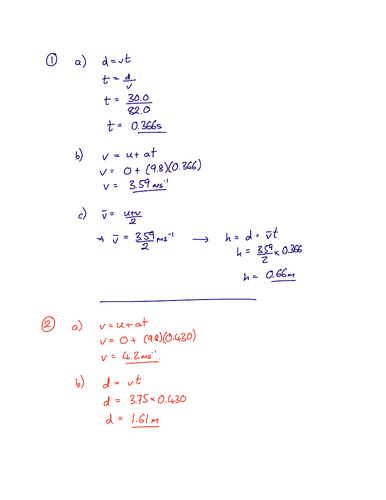 ① a) d = vt
t = d/v
t = 30.0/82.0
t = 0.366s
b) v = u + at
v = 0 + (9.8)(0.366)
v = 3.59 ms⁻¹
c) v̄ = u+v/2
→ v̄ = 3.59/2 ms⁻¹ → h = d = v̄t
h = 3.59/2 × 0.366
h = 0.66m
② a) v = u + at
v = 0 + (9.8)(0.430)
v = 4.2ms⁻¹.
b) d = vt
d = 3.75 × 0.430
d = 1.61 m